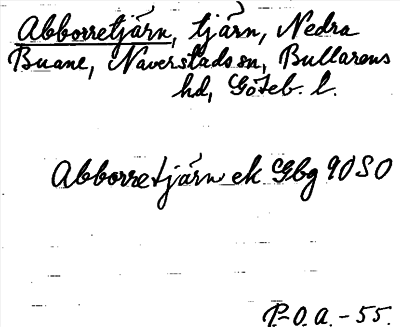 Abborretjärn, tjärn, Nedra
Buane, Naverstads sn, Bullarens
hd, Göteb. l.
Abborretjärn ek Gbg 90 SO
P.-O. A. - 55.